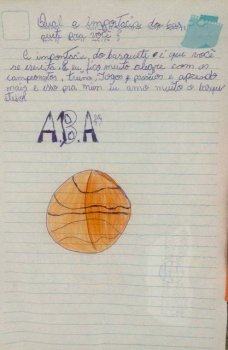 Qual a importância do bas-
quete pra você?
A importância do basquete é que você
se e eu fico muito alegre com os
campeonatos, treino, jogos e e aprendo
mais e isso pra mim eu amo muito o basque
A.B.A